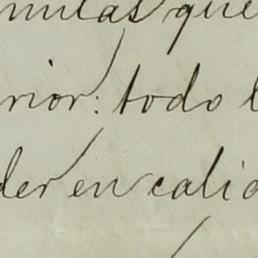 mulas que
rior: todo l
der en calid